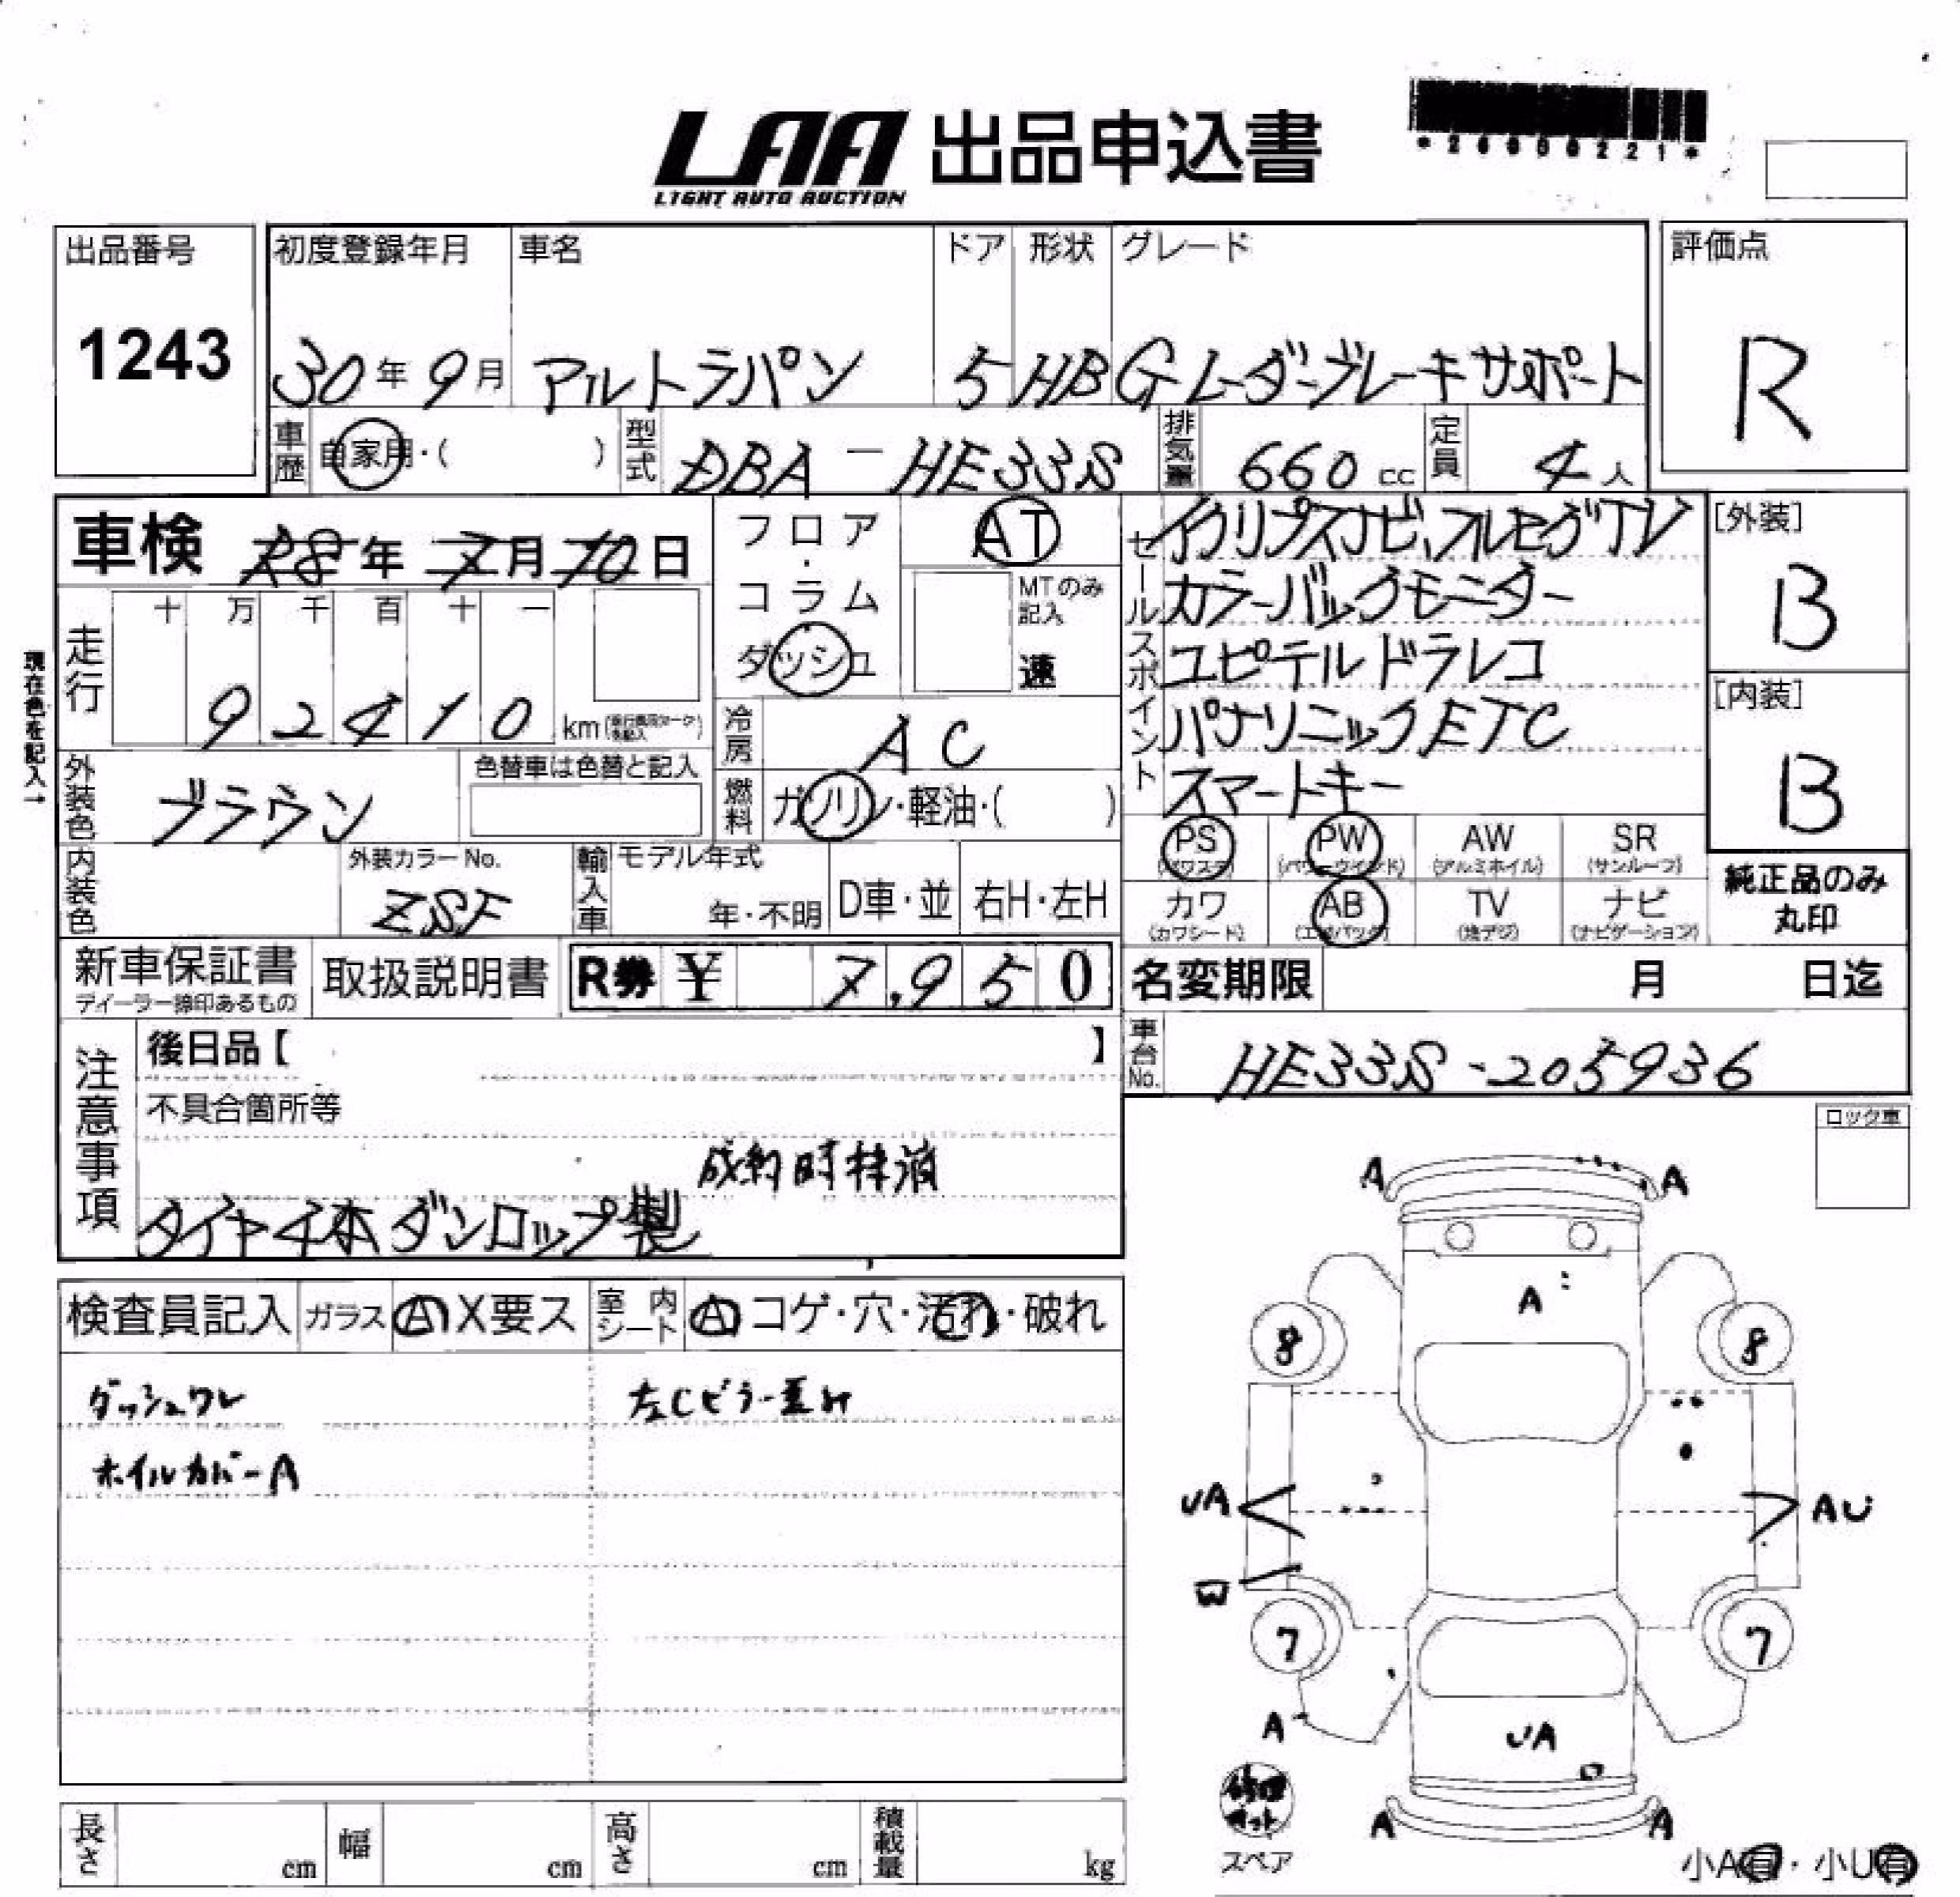 LAA 出品申込書
LIGHT AUTO AUCTION
出品番号
1243
初度登録年月
30年9月
車名
アルトラパン
ドア
5
形状
HB
グレード
G レーダーブレーキサポート
評価点
R
車歴
自家用・( )
型式
DBA-HE33S
排気量
660cc
定員
4人
車検 28年7月10日
フロア・コラム・ダッシュ
AT
MTのみ記入
速
セールスポイント
イクリプスナビ、フルセグTV
カラーバックモニター
ユピテルドラレコ
パナソニックETC
スマートキー
[外装]
B
[内装]
B
現在色を記入→
走行
十 万 千 百 十 一
9 2 4 1 0 km
冷房
AC
外装色
ブラウン
色替車は色替と記入
燃料
ガソリン・軽油・( )
PS PW AW SR
(パワステ) (パワーウインド) (アルミホイル) (サンルーフ)
カワ AB TV ナビ
(カワシート) (エアバッグ) (地デジ) (ナビゲーション)
純正品のみ
丸印
内装色
外装カラーNo.
ZSF
輸入車
モデル年式
年・不明
D車・並
右H・左H
新車保証書
ディーラー捺印あるもの
取扱説明書
R券 ¥ 7,950
名変期限 月 日迄
車台No.
HE33S-205936
注意事項
後日品【 】
不具合箇所等
成約時抹消
タイヤ4本ダンロップ製
ロック車
検査員記入
ガラス
A X要ス
室内シート
A コゲ・穴・汚れ・破れ
ダッシュワレ
左Cピラー歪み
ホイルカバーA
A A
A
8 8
UA AU
W
7 7
A
UA
修理キット
スペア
A A
小A有・小U有
長さ cm
幅 cm
高さ cm
積載量 kg